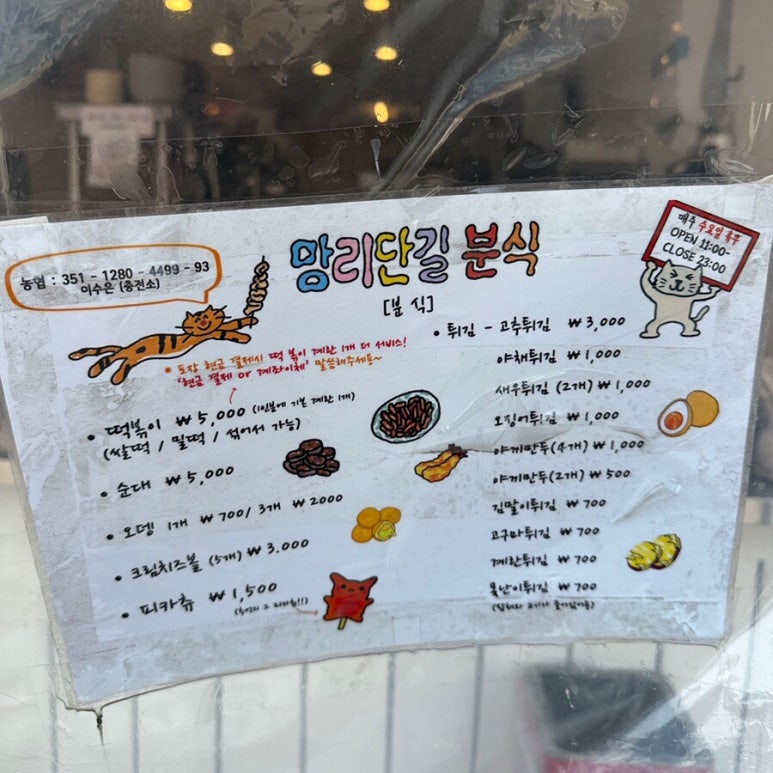 농협 : 351 - 1280 - 4499 - 93
이수은 (충전소)
망리단길 분식
[분 식]
매주 수요일 휴무
OPEN 11:00-
CLOSE 23:00
• 포장 현금 결제시 떡볶이 계란 1개 더 서비스!
'현금 결제 or 계좌이체' 말씀해주세용~
• 떡볶이 ₩5,000 (1인분에 기본 계란 1개)
(쌀떡 / 밀떡 / 섞어서 가능)
• 순대 ₩5,000
• 오뎅 1개 ₩700/ 3개 ₩2000
• 크림치즈볼 (5개) ₩3,000
• 피카츄 ₩1,500
• 튀김 - 고추튀김 ₩3,000
야채튀김 ₩1,000
새우튀김 (2개) ₩1,000
오징어튀김 ₩1,000
야끼만두(4개) ₩1,000
야끼만두(2개) ₩500
김말이튀김 ₩700
고구마튀김 ₩700
계란튀김 ₩700
못난이튀김 ₩700